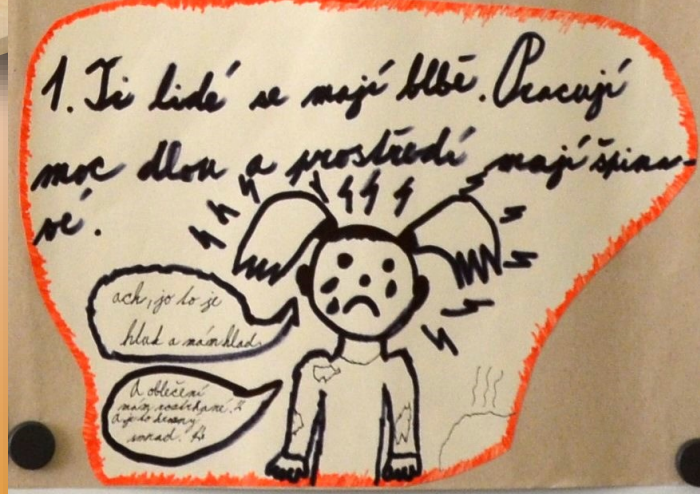 1. Ti lidé se mají blbě. Pracují
moc dlou a prostředí mají špina-
vé.
ach, jo to je
hluk a mám hlad.
A oblečení
mám roztrhané!
A je to hrozný
smrad!